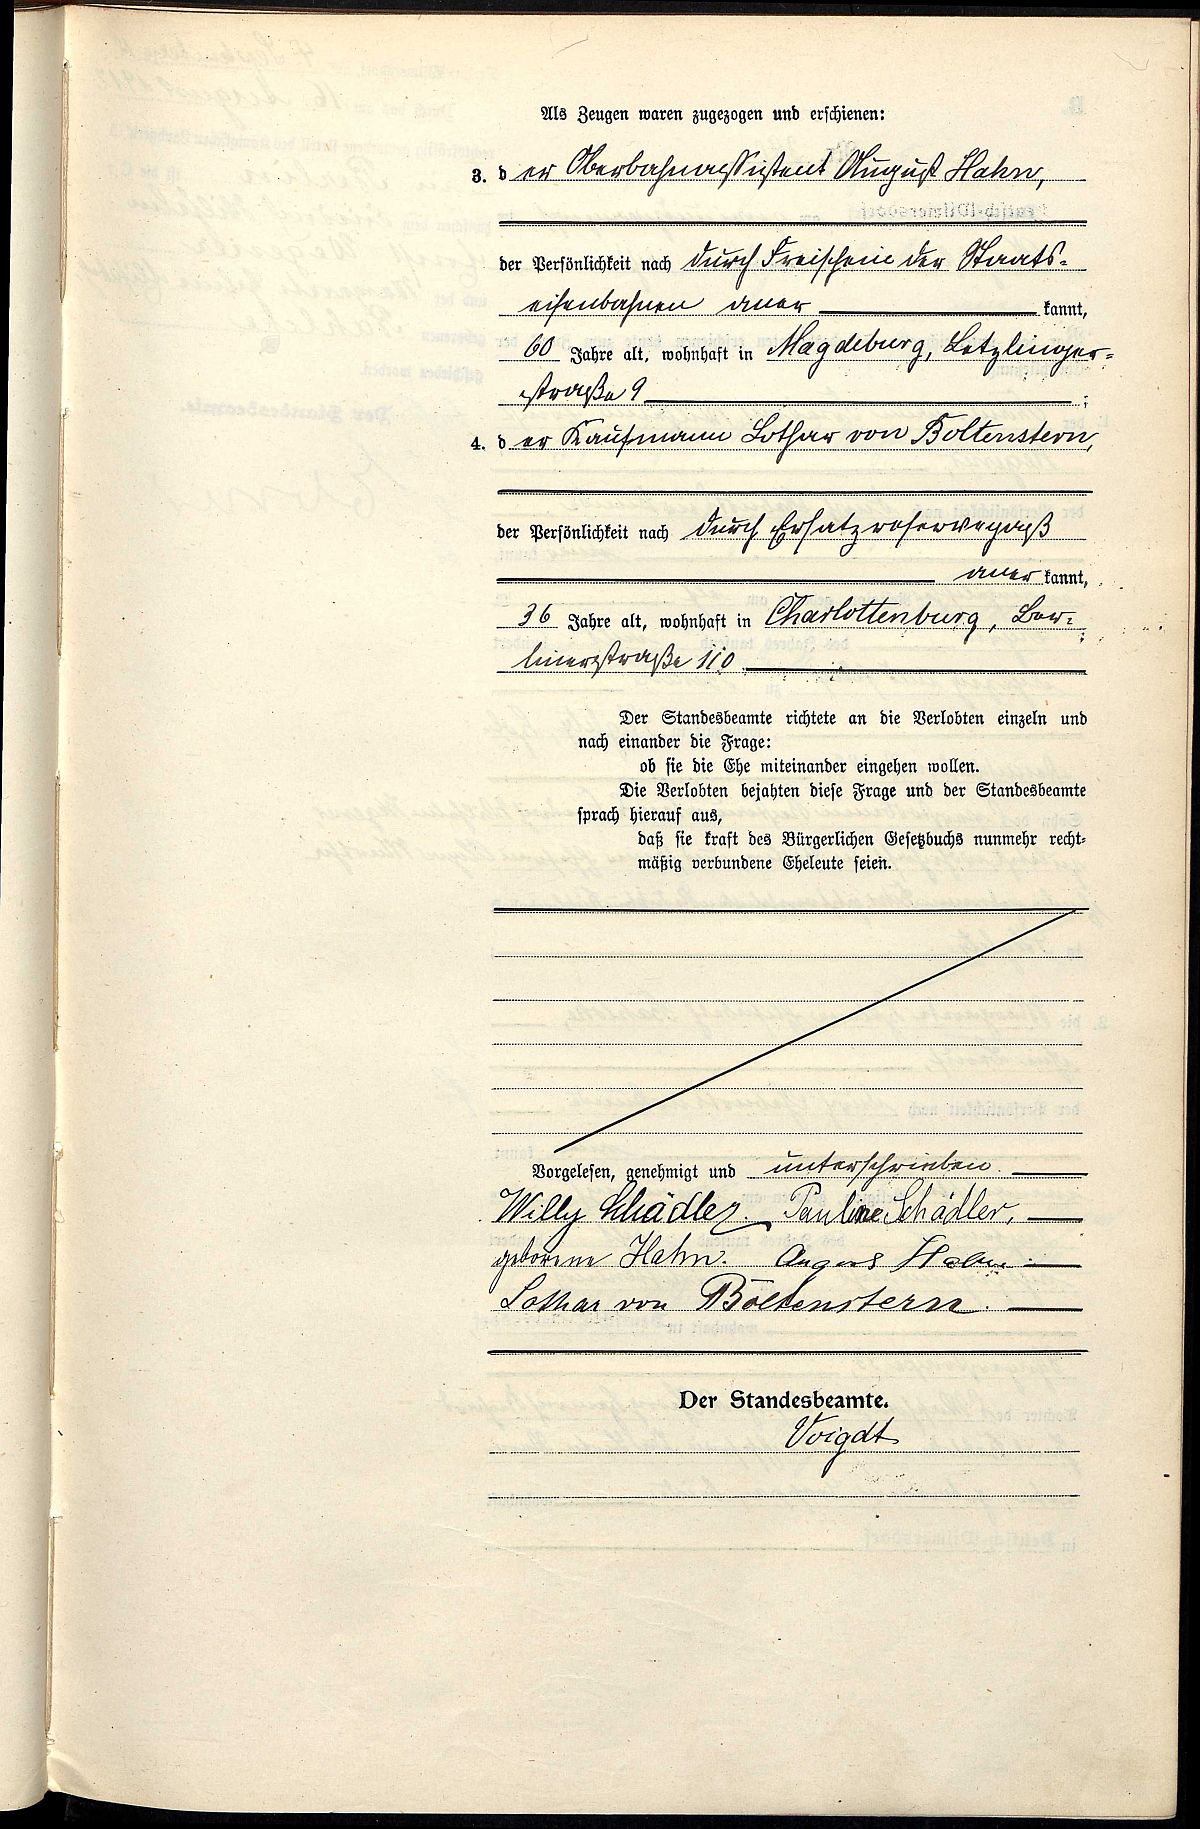 Als Zeugen waren zugezogen und erschienen:
3. der Oberbahnassistent August Hahn,
der Persönlichkeit nach durch Freischein der Staats-
eisenbahnen anerkannt,
60 Jahre alt, wohnhaft in Magdeburg, Letzlinger-
straße 9 ;
4. der Kaufmann Lothar von Boltenstern,
der Persönlichkeit nach durch Ersatzreservepaß
anerkannt,
36 Jahre alt, wohnhaft in Charlottenburg, Ber-
linerstraße 110 ;
Der Standesbeamte richtete an die Verlobten einzeln und
nach einander die Frage:
ob sie die Ehe miteinander eingehen wollen.
Die Verlobten bejahten diese Frage und der Standesbeamte
sprach hierauf aus,
daß sie kraft des Bürgerlichen Gesetzbuchs nunmehr recht-
mäßig verbundene Eheleute seien.
Vorgelesen, genehmigt und unterschrieben.
Willy Schädler. Pauline Schädler,
geborene Hahn. August Hahn.
Lothar von Boltenstern.
Der Standesbeamte.
Voigdt